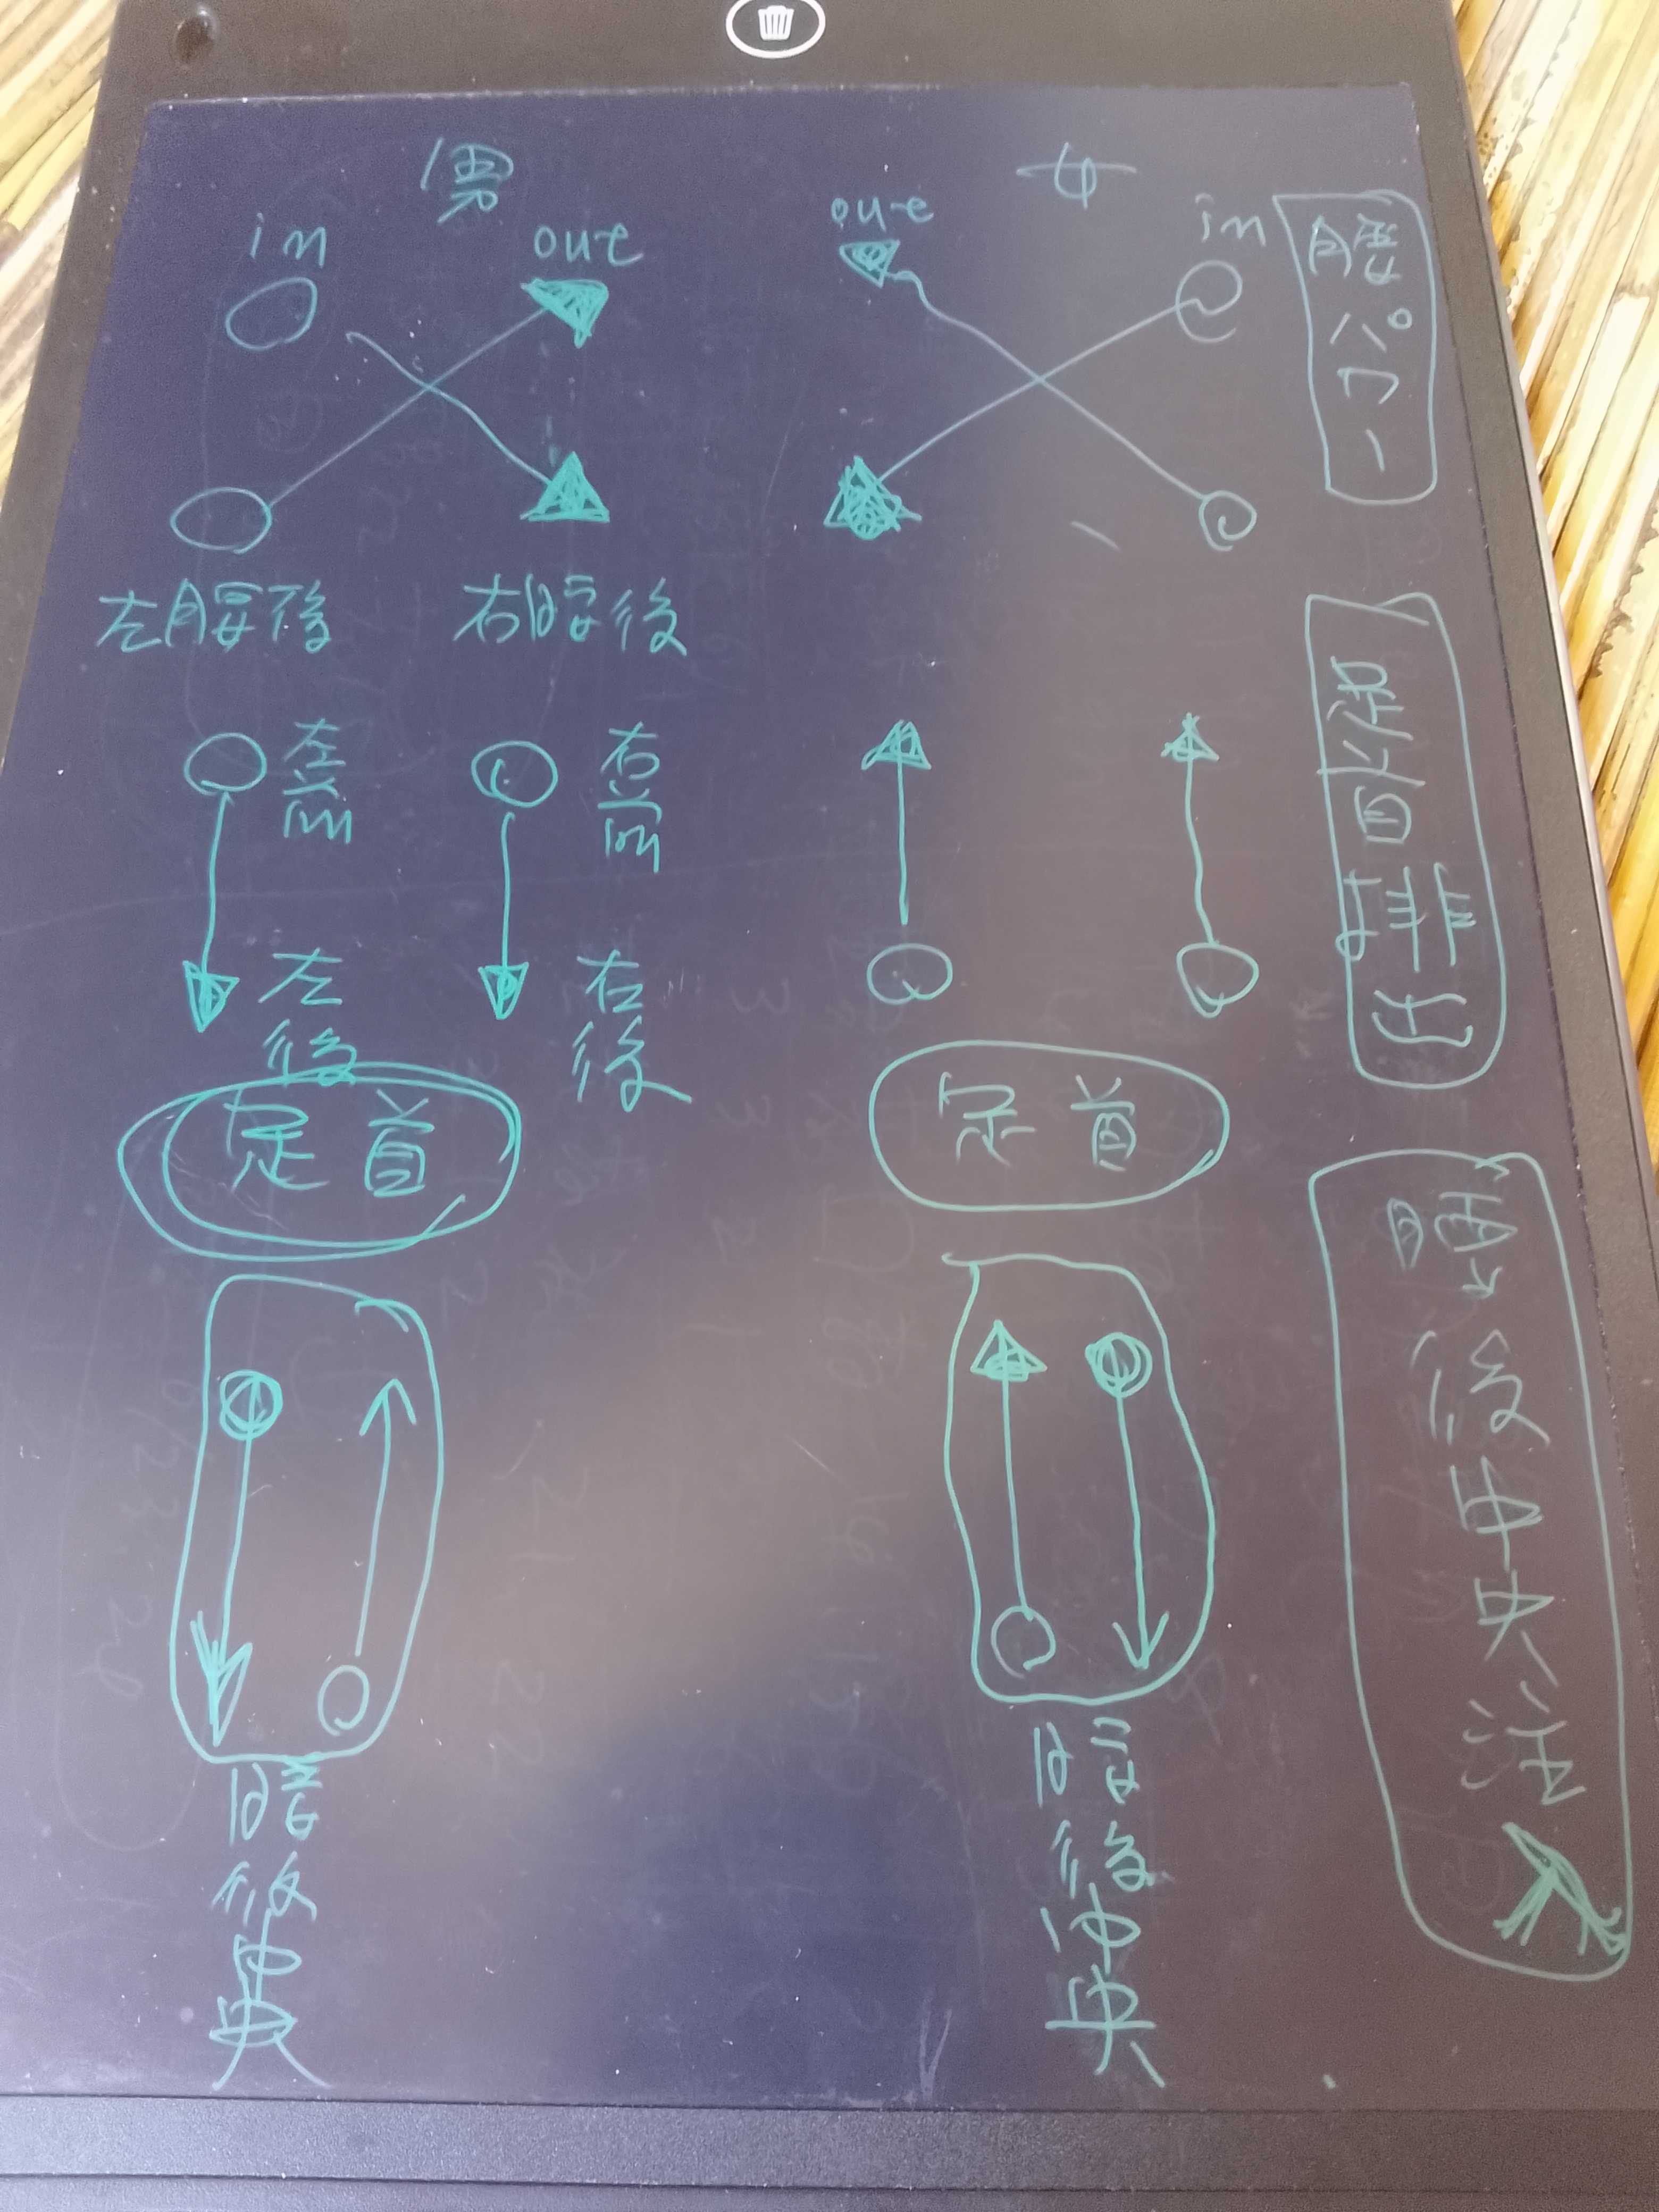 男
女
in
out
out
in
腰パワー
左腰後
右腰後
左前
右前
左後
右後
足首
足首
排出
後中央法
後中央
後中央